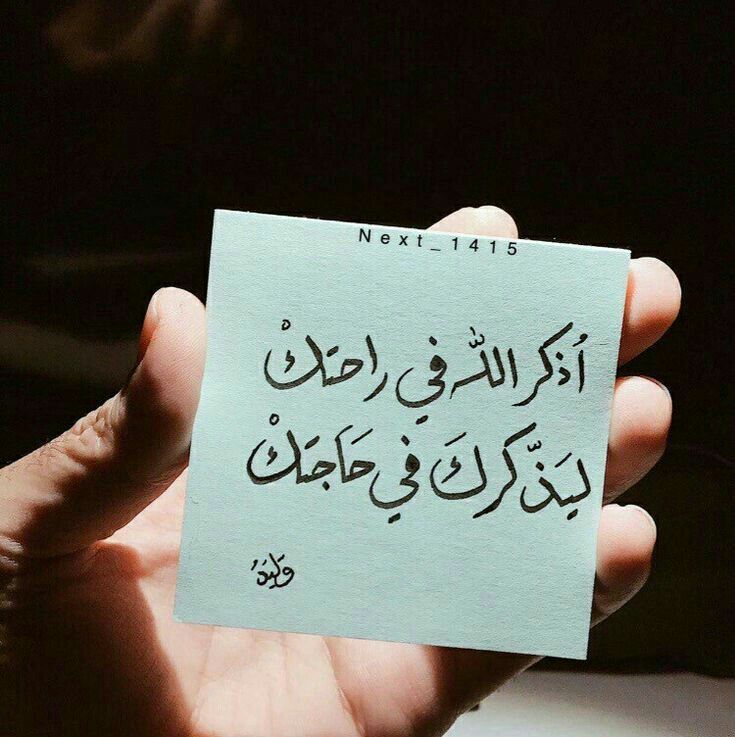 Next_1415
اُذكر الله في راحتكْ
ليَذّكركَ في حَاجتَكْ
وَليَدُ